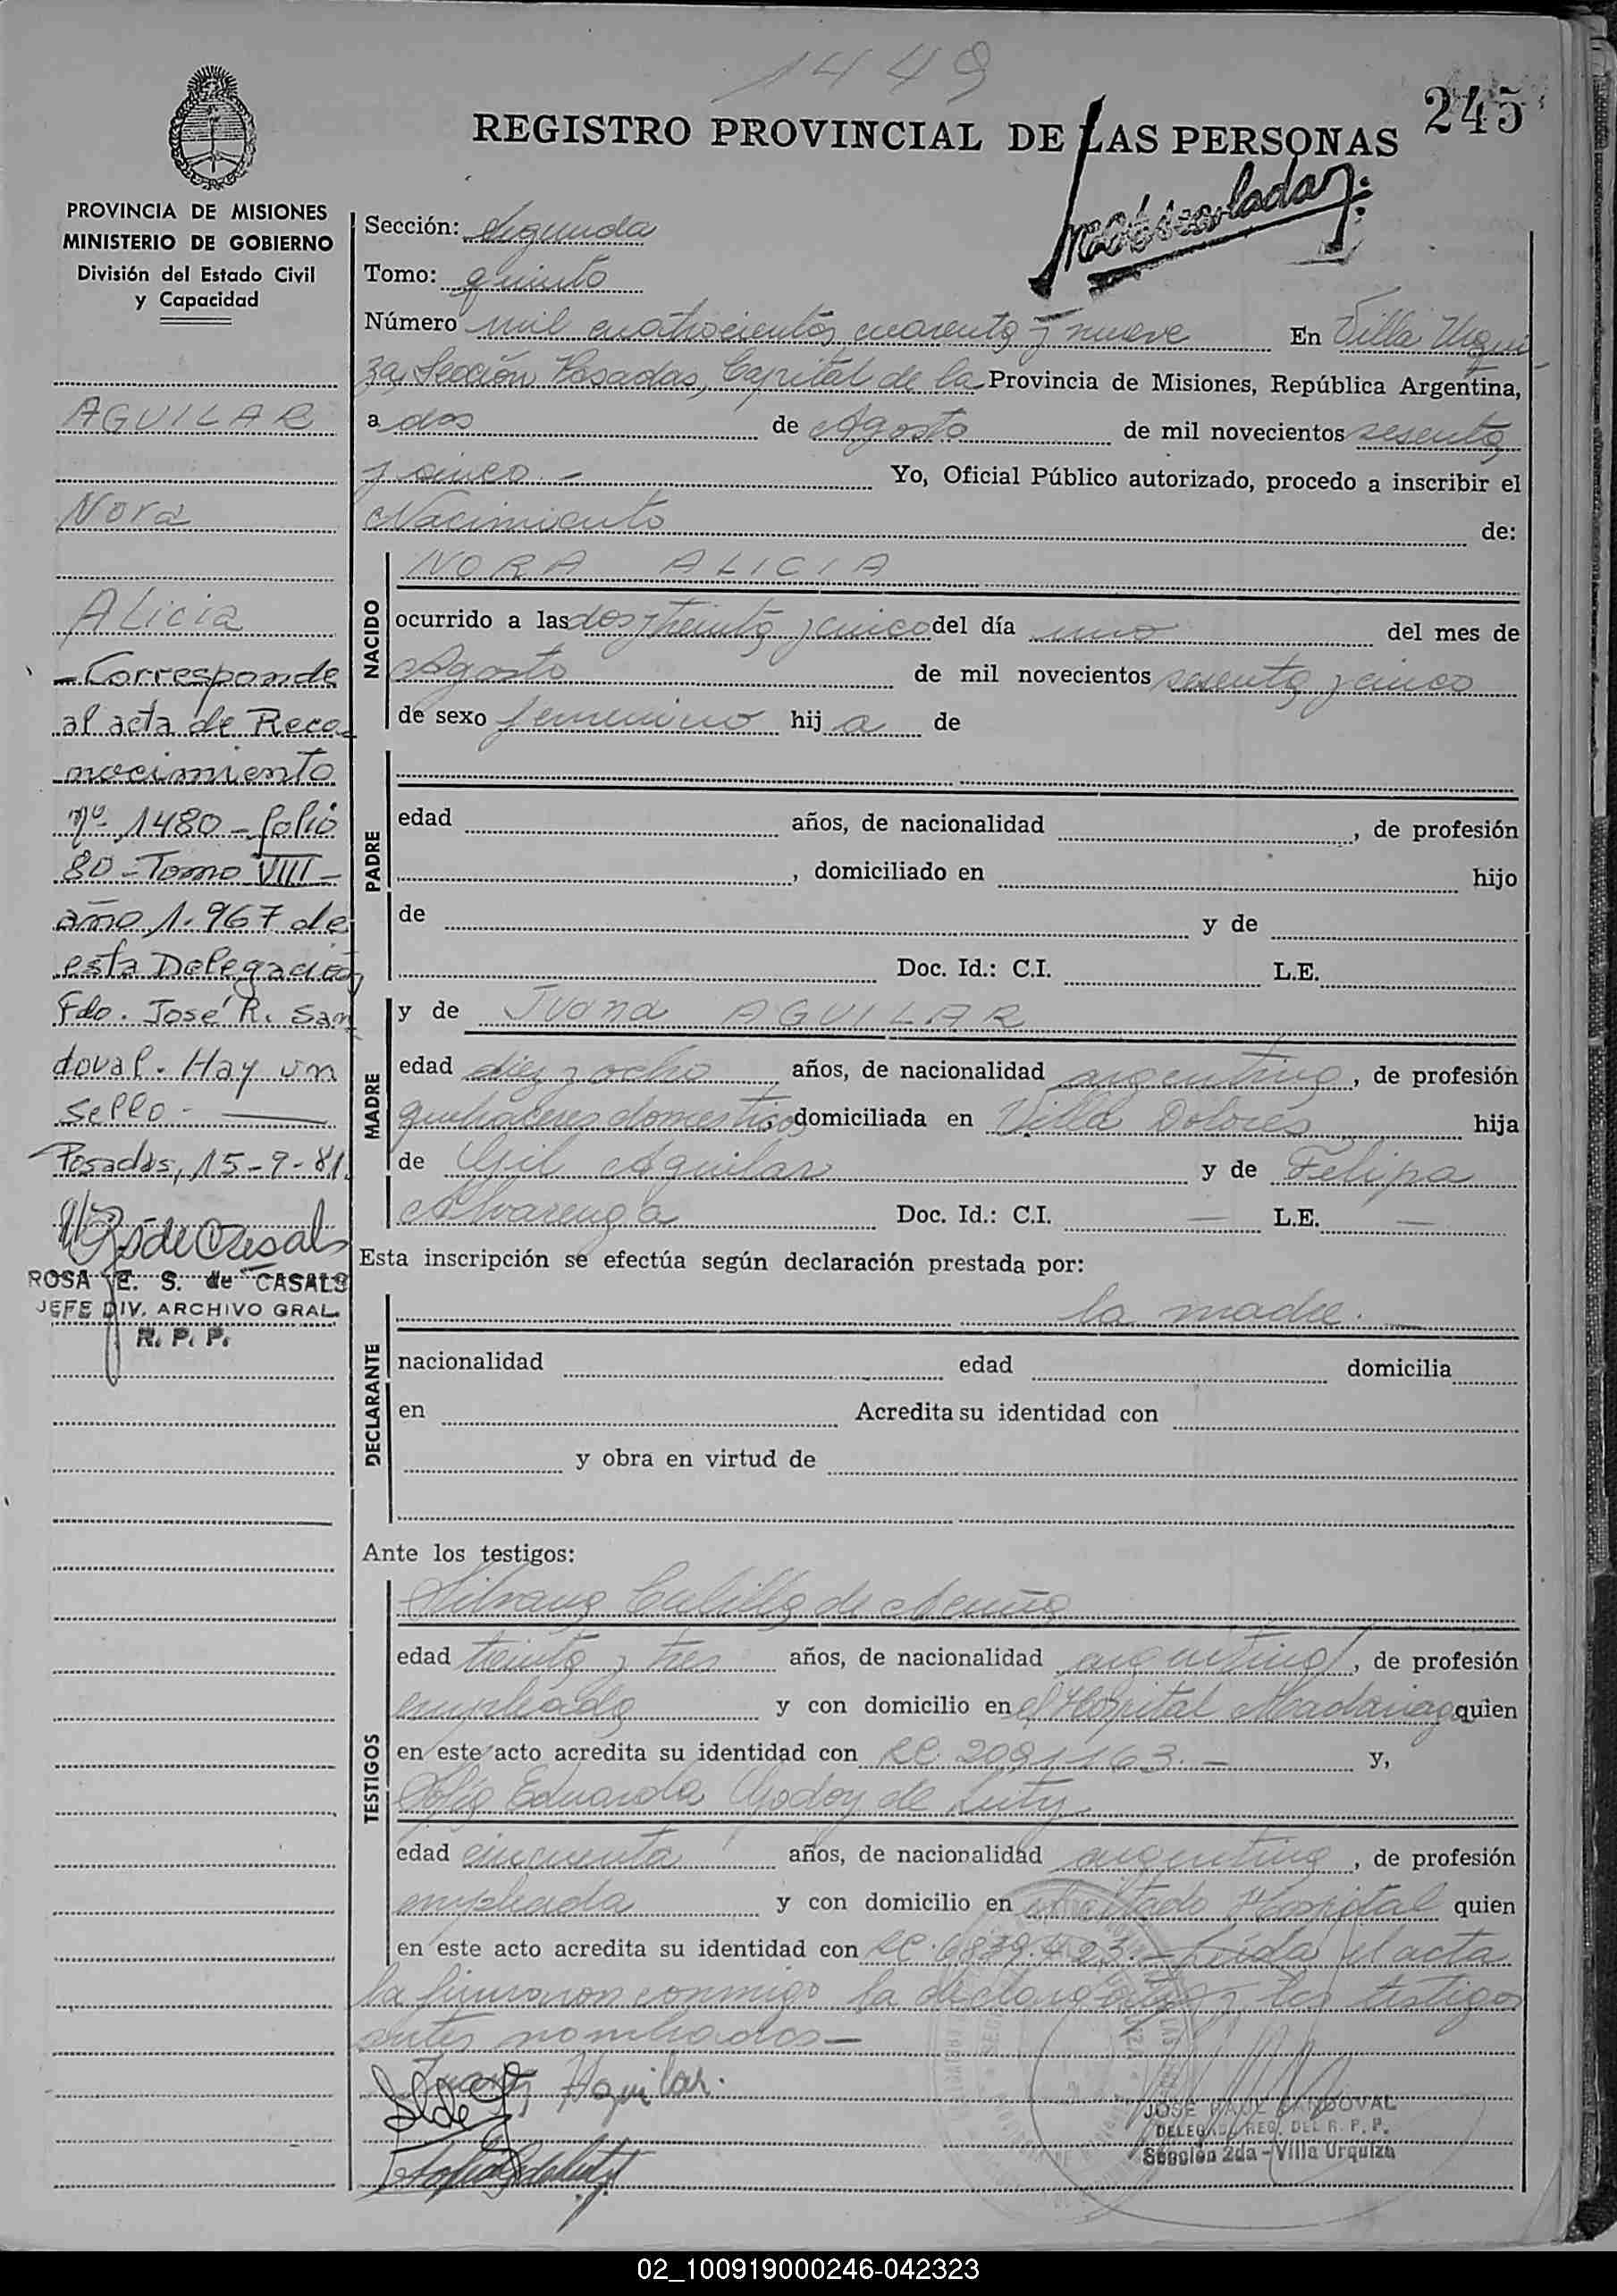 1449
245
REGISTRO PROVINCIAL DE LAS PERSONAS
Matriculada
PROVINCIA DE MISIONES
MINISTERIO DE GOBIERNO
División del Estado Civil
y Capacidad
AGUILAR
Nora
Alicia
- Corresponde
al acta de Reco-
nocimiento
nº 1480 - folio
80 - Tomo VIII -
año 1.967 de
esta Delegación
Fdo. José R. San
doval. Hay un
sello.
Posadas, 15-9-81.
ROSA E. S. de CASALS
JEFE DIV. ARCHIVO GRAL.
R. P. P.
Sección: Segunda
Tomo: quinto
Número mil cuatrocientos cuarenta y nueve En Villa Urqui
za, Sección Posadas, Capital de la Provincia de Misiones, República Argentina,
a dos de Agosto de mil novecientos sesenta
y cinco.- Yo, Oficial Público autorizado, procedo a inscribir el
Nacimiento de:
NACIDO
NORA ALICIA
ocurrido a las dos y treinta y cinco del día uno del mes de
Agosto de mil novecientos sesenta y cinco
de sexo femenino hij a de
PADRE
edad años, de nacionalidad , de profesión
, domiciliado en hijo
de y de
Doc. Id.: C.I. L.E.
MADRE
y de Juana AGUILAR
edad diez y ocho años, de nacionalidad argentina, de profesión
quehaceres domesticos domiciliada en Villa Dolores hija
de Gil Aguilar y de Felipa
Alvarenga Doc. Id.: C.I. — L.E. —
Esta inscripción se efectúa según declaración prestada por:
DECLARANTE
la madre.
nacionalidad edad domicilia
en Acredita su identidad con
y obra en virtud de
Ante los testigos:
TESTIGOS
Silvana de
edad treinta y tres años, de nacionalidad argentina, de profesión
empleada y con domicilio en el Hospital Madariaga quien
en este acto acredita su identidad con LC. 2091163.- y,
Sofía Eduarda Godoy de Lutz
edad cincuenta años, de nacionalidad argentina, de profesión
empleada y con domicilio en el citado Hospital quien
en este acto acredita su identidad con LC. 6839.423.- Leída el acta
la firmaron conmigo la declarante y los testigos
antes nombrados-
Juana Aguilar.
JOSE RAUL SANDOVAL
DELEGADO REG. DEL R. P. P.
Sección 2da - Villa Urquiza
02_100919000246-042323